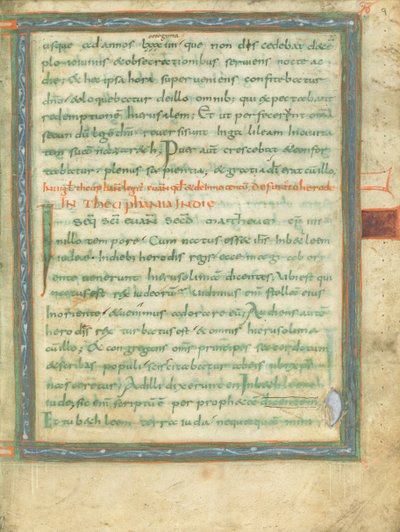 octoginta
usque ad annos lxxxiiii que non discedebat dete
plo ieiuniis & obsecrationibus serviens nocte ac
die; & hec ipsa hora superveniens confitebatur
dno & loquebatur de illo omnib; qui expectabant
redemptionem hierusalem; Et ut perfecerunt omā
secundū legē dnī reversi sunt in galileam in civita
tem suā nazareth; Puer aut crescebat & confor
tabatur plenus sapientia, & gratia dī erat cū illo,
defuncto herode
IN Theophania In die
secd matheum
In illo tempore Cum natus ess& ihs In bethleem
iudeae In dieb; herodis regis ecce magi ab ori
ente venerunt hierusolimā dicentes, Ubi est qui
natus est rex iudeorum, vidimus enī stellam eius
In oriente, & venimus adorare eū; Audiens aut
herodes rex turbatus est & omnis hierusolima
cū illo; & congregans omnes principes sacerdotum
& scribas populi, sciscitabatur ab eis ubi xps
nasceretur; At illi dixerunt ei In bethleem
iudae, sic enī scriptū ē per propheta dicentem
Et tu bethleem terra iuda nequaquam mini